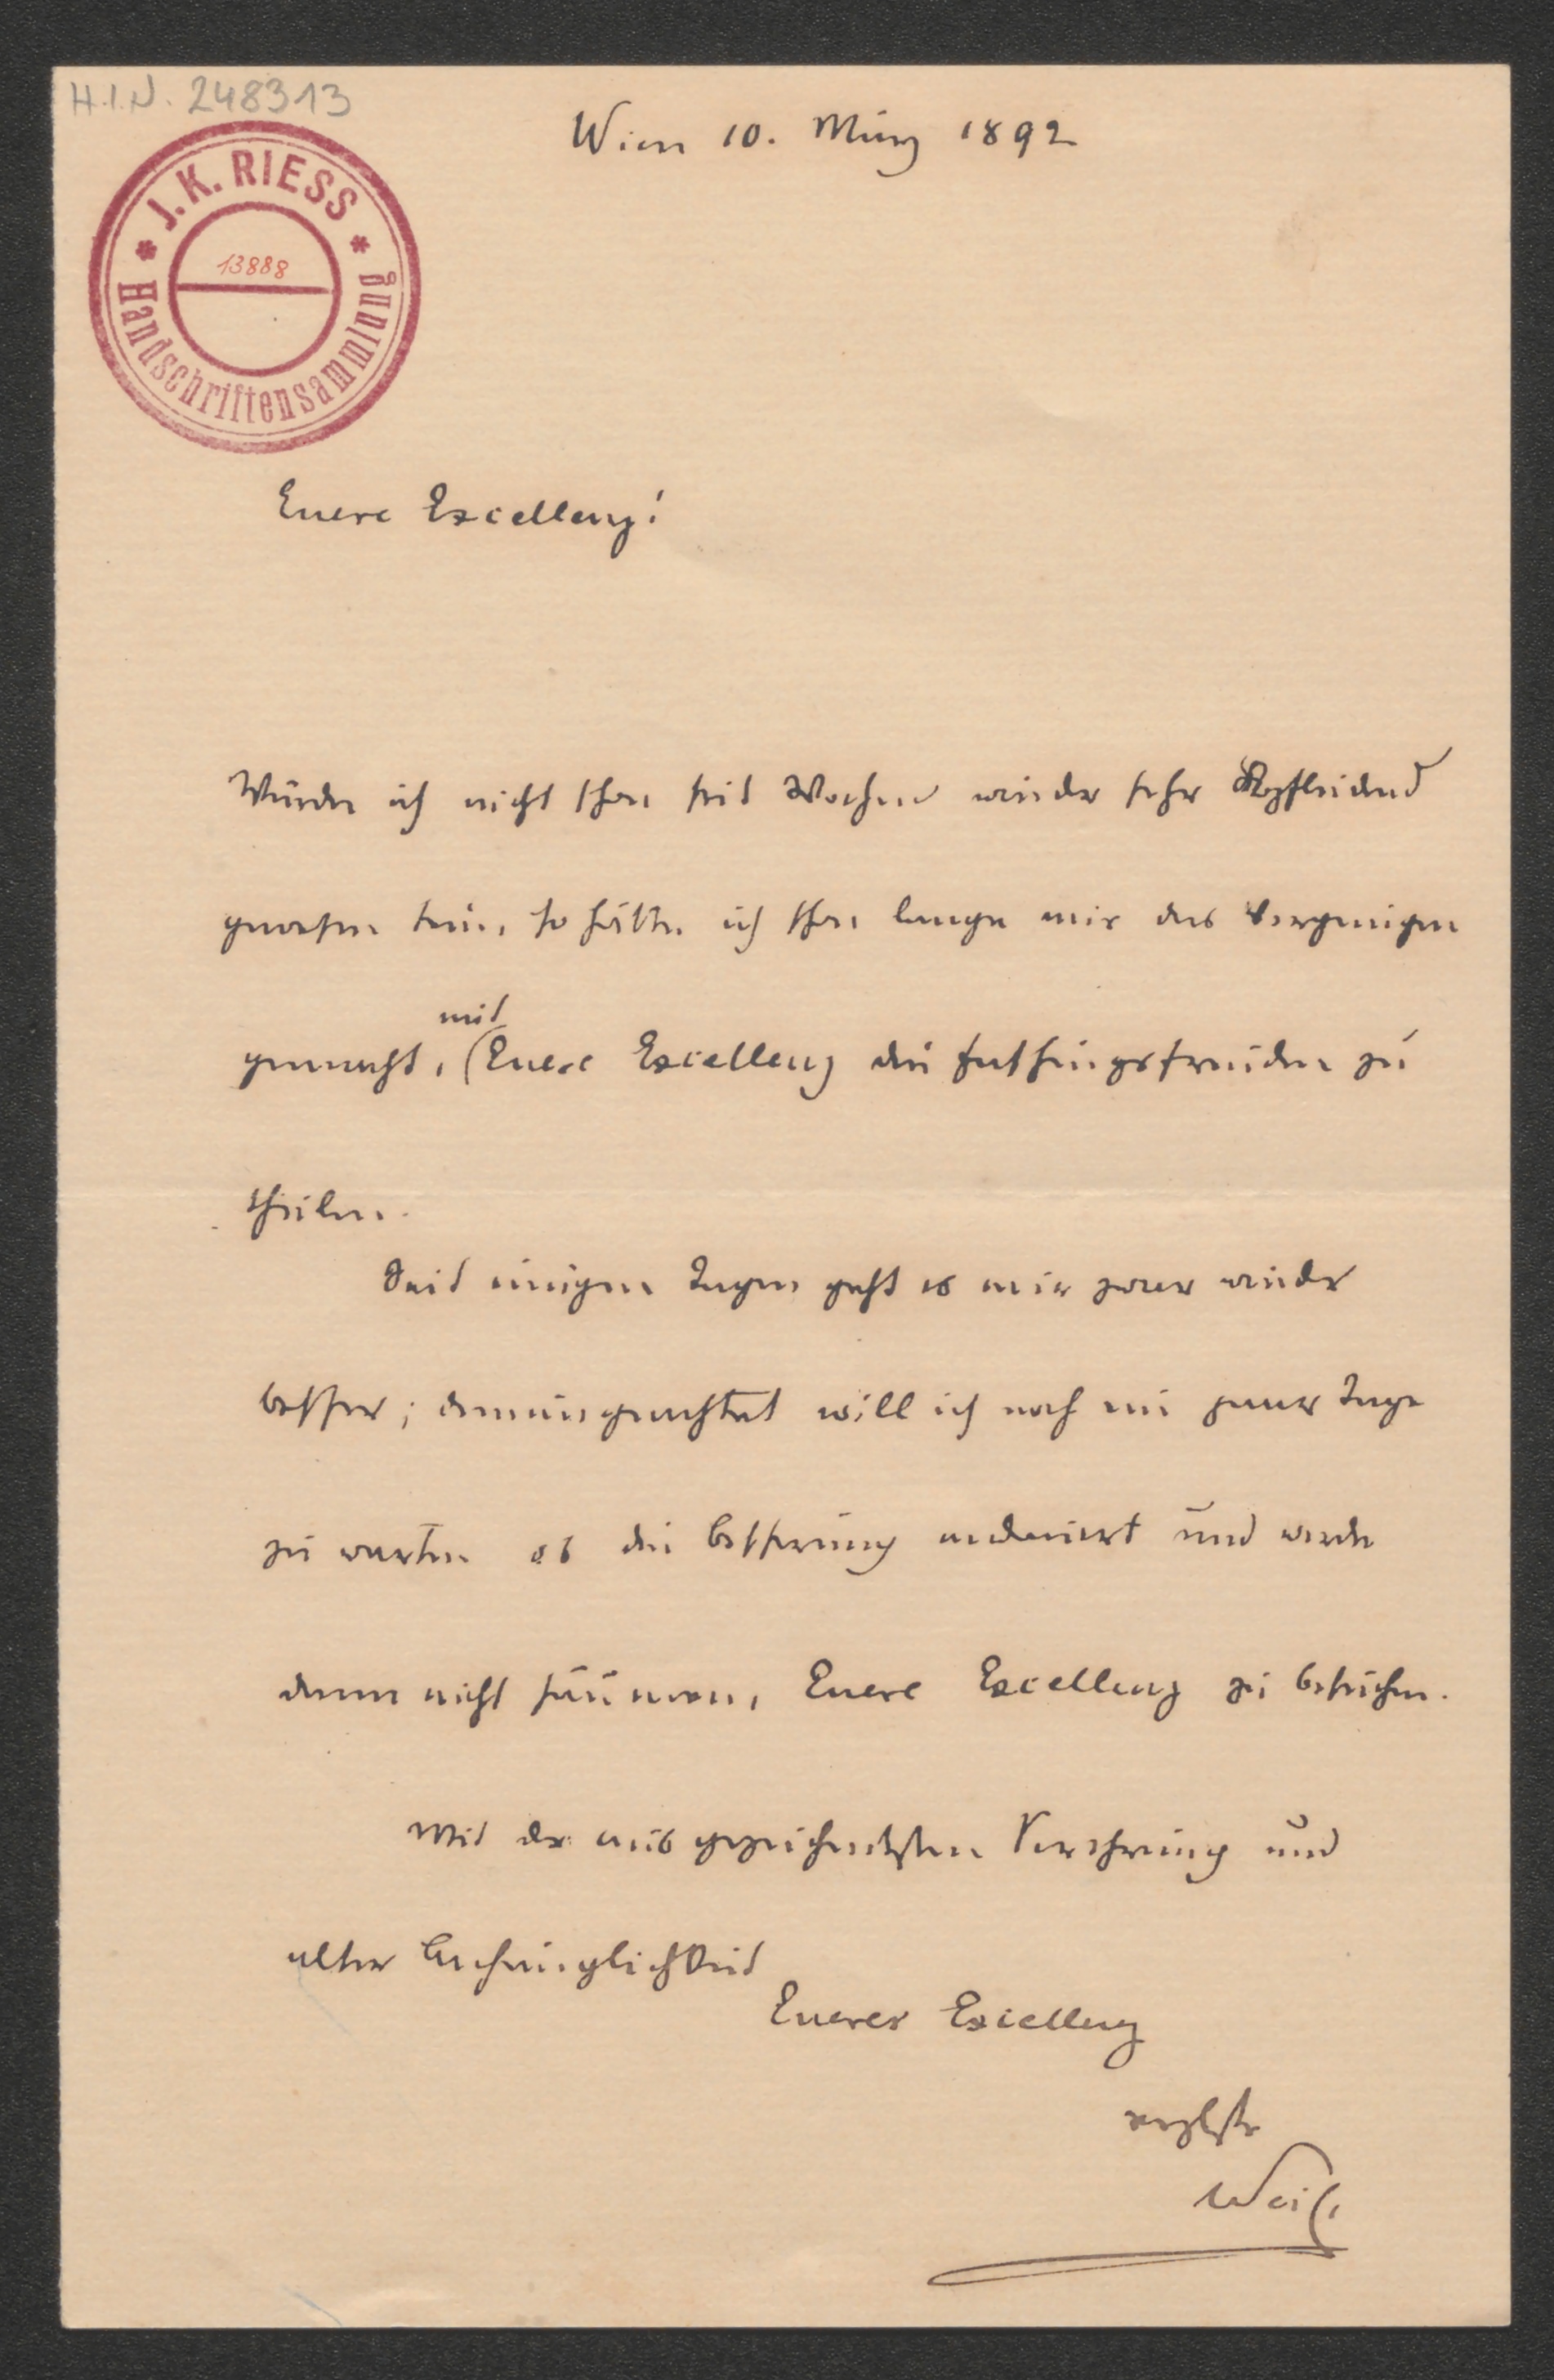 H.I.N. 248313
Wien 10. März 1892
J. K. RIESS
13888
Handschriftensammlung
Euere Excellenz!
Würde ich nicht schon seit Wochen wieder sehr Kopfleidend
gewesen sein, so hätte ich schon lange mir das Vergnügen
mit
gemacht, Euere Excellenz die Faschingsfreuden zu
theilen.
Seit einigen Tagen geht es mir zwar wieder
besser; demungeachtet will ich noch ein paar Tage
zu warten ob die Besserung andauert und werde
dann nicht säumen, Euere Excellenz zu besuchen.
Mit der ausgezeichnetsten Verehrung und
alter Anhänglichkeit
Euerer Excellenz
Weiß